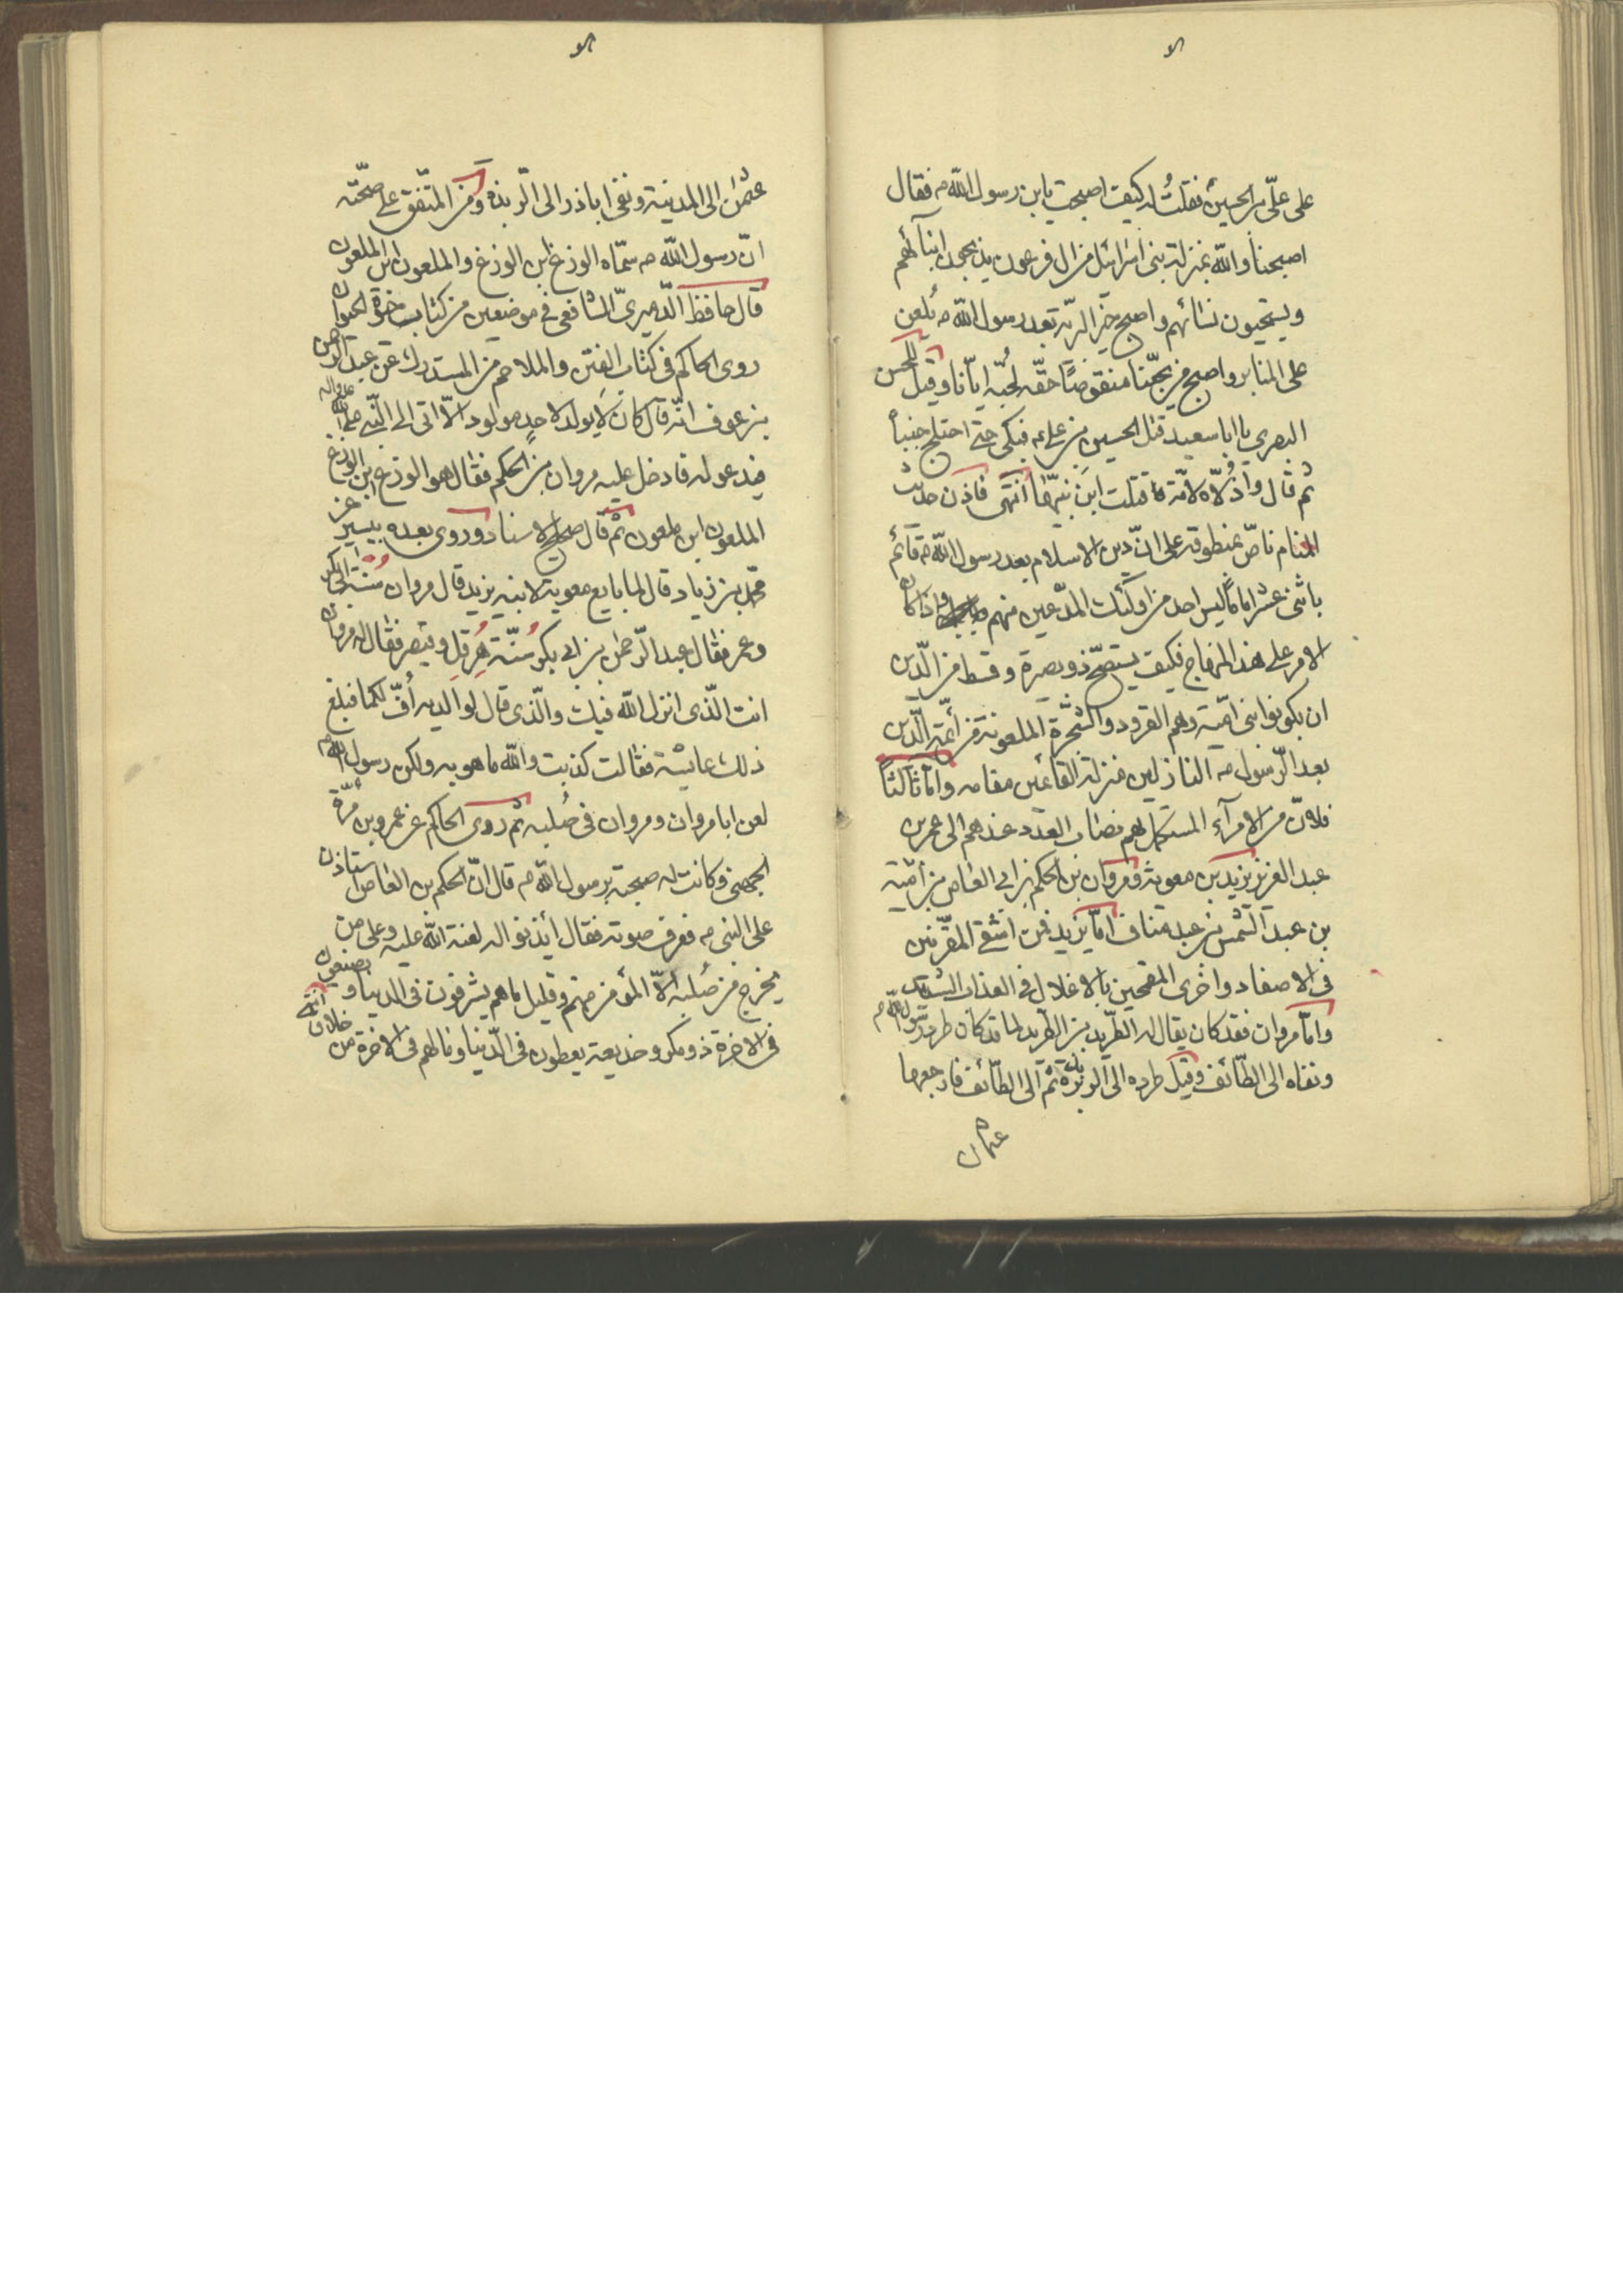 على علىّ بن الحسينؑ فقلتُ له كيف اصبحت يابن رسول الله ص فقال
اصبحنا والله بمنزلة بنى اسرائيل من ال فرعون يذبحون ابنائهم
ويستحيون نسائهم واصبح خير البريّة بعد رسول الله ص يُلعن
على المنابر واصبح من يحبّنا منقوصاً حقّه لحُبّه ايّانا وقيل للحسن
البصرى يا ابا سعيد قتل الحسين بن على ع فبكى حتى اختلج جنباه
ثم قال واذُلّاه لامّة قتلت ابن نبيّها انتهى فاذن حديث
المنام ناصّ بمنطوقه على انّ دين الاسلام بعد رسول الله ص قائم
باثنى عشر اماماً ليس احد من اولئك المدّعين منهم واذا كان
الامر على هذا المنهاج فكيف يستصحّ ذو بصرة وقسط من الدّين
ان يكونوا بنى اميّة وهم القرود والشجرة الملعونة من أئمّة الدّين
بعد الرّسول ص النازلين منزلته القائمين مقامه وامّا ثالثاً
فلانّ من الامرآء المستكمل بهم نصاب العدد عندهم الى عمر بن
عبد العزيز يزيد بن معوية ومروان بن الحكم بن ابى العاص بن اميّة
بن عبد الشمس بن عبد مناف امّا يزيد فمن اشقى المقرّنين
فى الاصفاد واخرى المقمحين بالاغلال فى العذاب الشديد
وامّا مروان فقد كان يقال له الطّريد بن الطّريد لما قد كان طرده رسول الله ص
ونفاه الى الطّائف وقيل طرده الى الربذة ثمّ الى الطّائف فارجعها
عثمان
عثمٰن الى المدينة ونفى اباذر الى الرّبذة ومن المتّفق على صحّته
انّ رسول الله ص سمّاه الوزغ ابن الوزغ والملعون ابن الملعون
قال حافظ الدّميرىّ الشافعى فى موضعين من كتاب حيوة الحيوان
روى الحاكم فى كتاب الفتن والملاحم من المستدرك عن عبد الرّحمن
بن عوف انّه قال كان لا يولد لاحدٍ مولود الّا اتى الى النّبى صلى الله عليه واله
فيدعو له فادخل عليه مروان بن الحكم فقال هو الوزغ بن الوزغ
الملعون ابن ملعون ثم قال صحيح الاسناد وروى بعده بيسير عن
محمّد بن زياد قال لما بايع معوية لابنه يزيد قال مروان سُنّة ابى بكر
وعمر فقال عبد الرّحمٰن بن ابى بكر سُنّة هِرقل وقيصر فقال له مروان
انت الّذى انزل الله فيك والّذى قال لوالديه أُفّ لكما فبلغ
ذلك عايشة فقالت كذبت والله ما هو به ولكن رسول الله ص
لعن ابا مروان ومروان فى صُلبه ثم روى الحاكم عن عمرو بن مُرّة
الجهنى وكانت له صحبة برسول الله ص قال انّ الحكم بن العاص استاذن
على النبى ص فعرف صوته فقال أيذنوا له لعنة الله عليه وعلى من
يخرج من صُلبه الّا المؤمن منهم وقليل ما هم يشرفون فى الدنيا ويضيعون
فى الاخرة ذو مكر وخديعة يعطون فى الدّنيا وما لهم فى الاخرة من خلاق انتهى